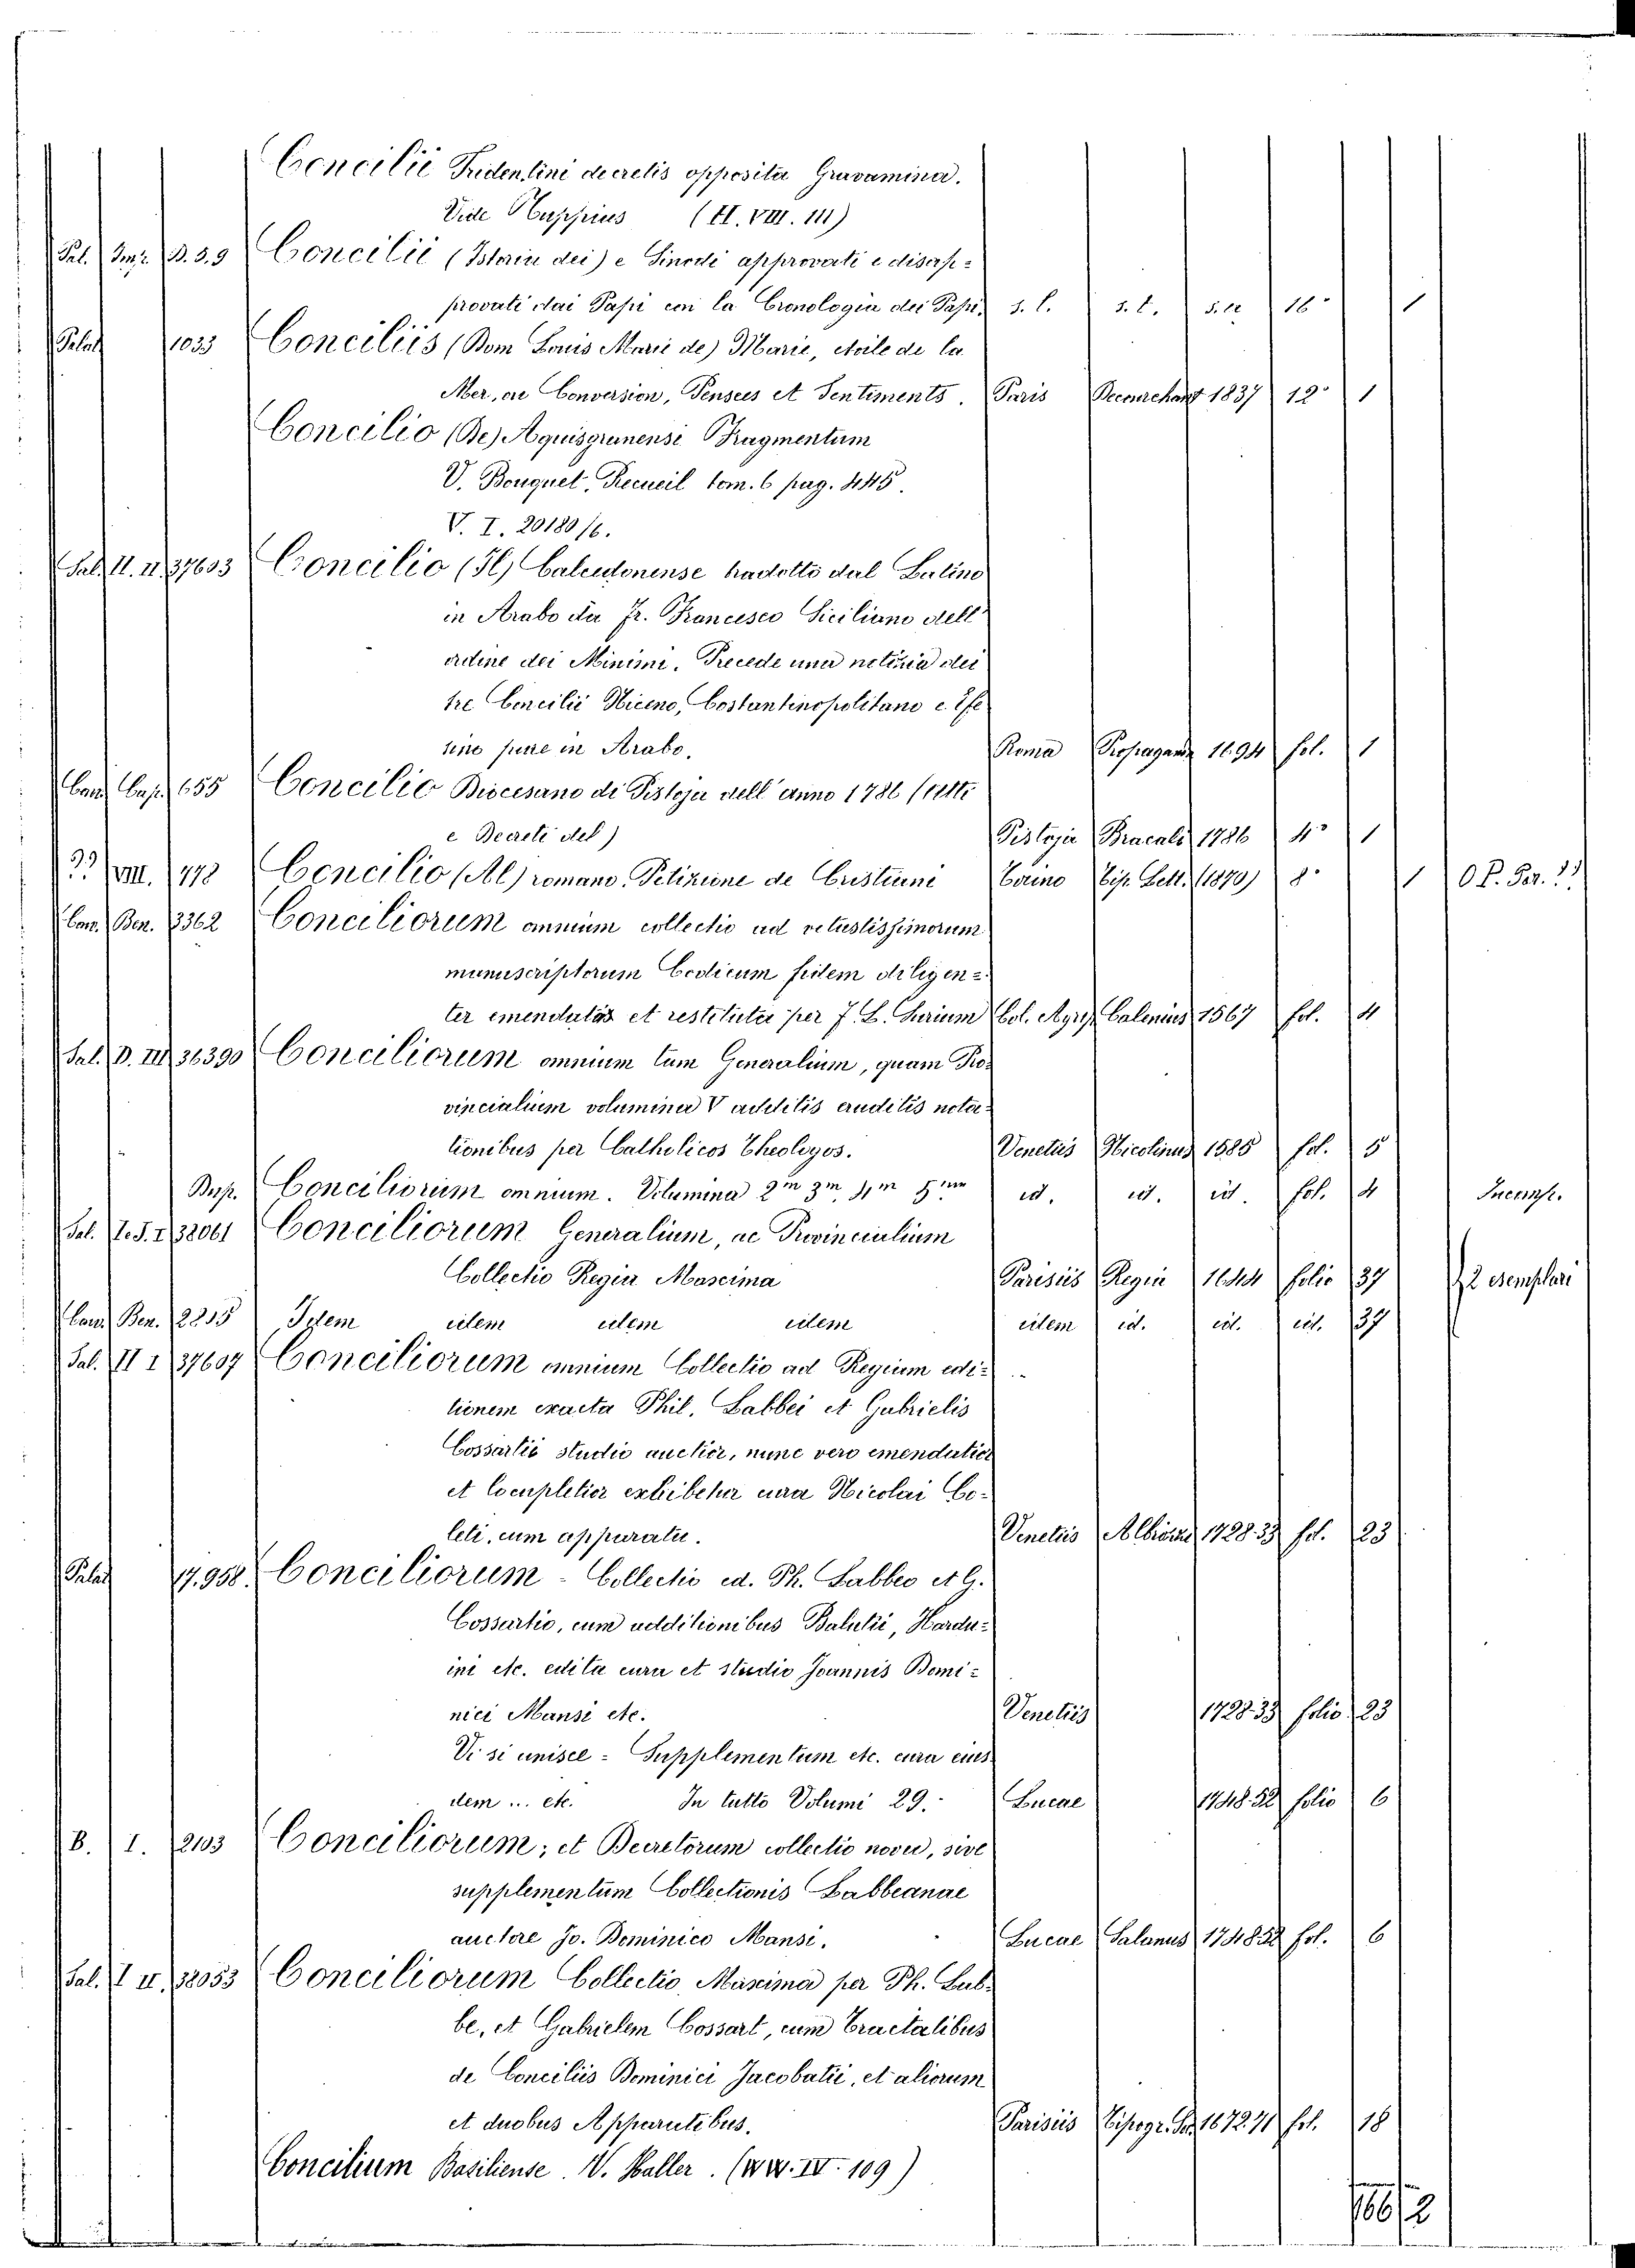 Concilii Tridentini decretis opposita Gravamina.
Vide Huppius (H. VIII. 111)
Pal. Imp. B. 5. 9 Concilii (Istoria dei) e Sinodi approvati e disap=
provati dai Papi con la Cronologia dei Papi s. l. s. t. s. a 16° 1
Palat 1033 Conciliis (Dom Louis Marie de) Marie, etoile de la
Mer, ou Conversion, Pensees et Sentiments. Paris 1837 12° 1
Concilio (De) Aquisgranensi Fragmentum
V. Bouquet, Recueil tom. 6 pag. 445.
V. I. 20180/6.
Sal. II. II. 37603 Concilio (Il) Calcedonense tradotto dal Latino
in Arabo da Fr. Francesco Siciliano dell'
ordine dei Minimi. Precede una notizia dei
tre Concilii Niceno, Costantinopolitano e Efe
sino pure in Arabo. Roma Propagand 1694 fol. 1
Cam. Cap. 655 Concilio Diocesano di Pistoja dell' anno 1786 (atti
e Decreti del) Pistoja Bracali 1786 4° 1
?? VIII. 778 Concilio (Al) romano. Petizione de Cristiani Torino Tip. Lett. (1870) 8° 1 O P. Por. ??
Cam. Ben. 3362 Conciliorum omnium collectio ad vetustissimorum
manuscriptorum Codicum fidem diligen=
ter emendatas et restituta per F. L. Surium Col. Agrip Calenius 1567 fol. 4
Sal. D. III 36390 Conciliorum omnium tum Generalium, quam Pro-
vincialium volumina V additis eruditis nota-
tionibus per Catholicos Theologos. Venetiis Nicolinus 1585 fol. 5
Dup. Conciliorum omnium. Volumina 2m 3m 4m 5um id. id. id. fol. 4 Incomp.
Sal. 38061 Conciliorum Generalium, ac Provincialium
Collectio Regia Maxima Parisiis Regia 1644 folio 37 2 esemplari
Cam. Ben. 2215 Idem idem idem idem idem id. id. id. 37
Sal. II I 37607 Conciliorum omnium Collectio ad Regium edi=
tionem exacta Phil. Labbei et Gabrielis
Cossartii studio auctior, nunc vero emendatior
et locupletior exhibetur cura Nicolai Co-
leti, cum apparatu. Venetiis Albrizzi 1728-33 fol. 23
Palat 17.958. Conciliorum - Collectio ed. Ph. Labbeo et G.
Cossartio, cum additionibus Balutii, Hardu=
ini etc. edita cura et studio Joannis Domi=
nici Mansi etc. Venetiis 1728-33 folio 23
Vi si unisce = Supplementum etc. cura eius
dem ... etc. In tutto Volumi 29. Lucae 1748-52 folio 6
B. I. 2103 Conciliorum; et Decretorum collectio nova, sive
supplementum Collectionis Labbeanae
auctore Jo. Dominico Mansi. Lucae Salanus 1748-52 fol. 6
Sal. I II. 38053 Conciliorum Collectio Maxima per Ph. Lab-
be, et Gabrielem Cossart, cum Tractatibus
de Conciliis Dominici Jacobatii, et aliorum
et duobus Apparatibus. Parisiis Tipogr. 1672-71 fol. 18
Concilium Basiliense. V. Haller. (WW. IV. 109)
166/2